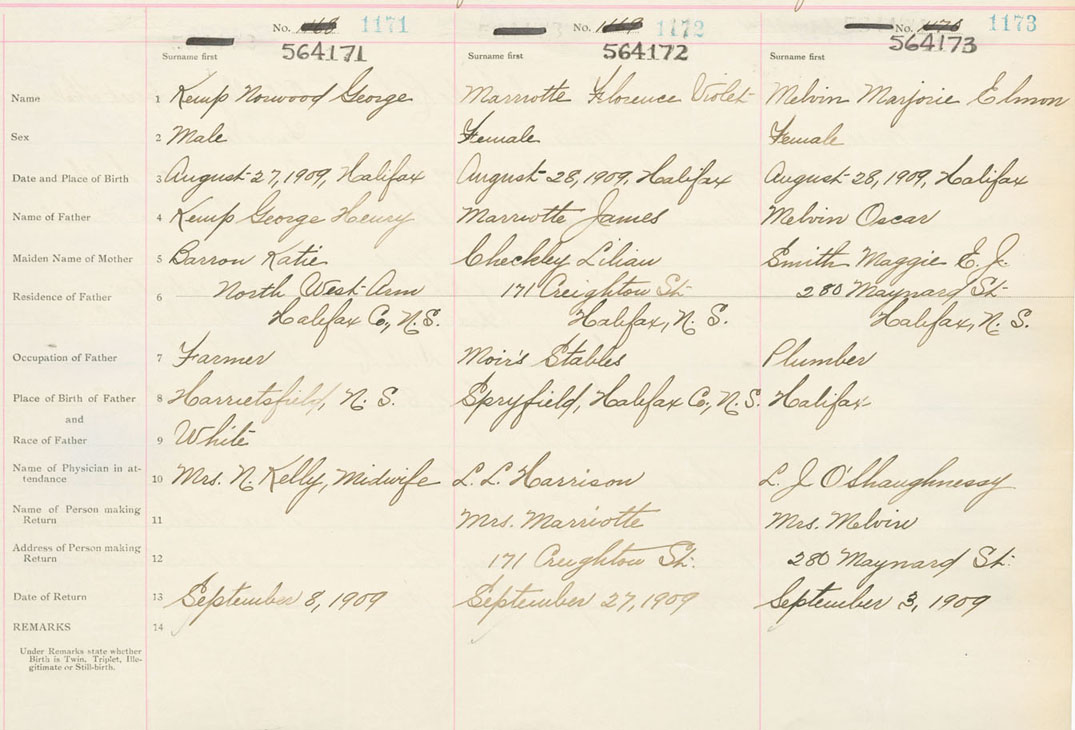 No. 1171 No. 1172 No. 1173
564171 564172 564173
Surname first Surname first Surname first
Name 1 Kemp Norwood George Marriotte Florence Violet Melvin Marjorie Elmon
Sex 2 Male Female Female
Date and Place of Birth 3 August 27, 1909, Halifax August 28, 1909, Halifax August 28, 1909, Halifax
Name of Father 4 Kemp George Henry Marriotte James Melvin Oscar
Maiden Name of Mother 5 Barron Katie Checkley Lilian Smith Maggie E. J.
Residence of Father 6 North West Arm 171 Creighton St. 280 Maynard St.
Halifax Co., N. S. Halifax, N. S. Halifax, N. S.
Occupation of Father 7 Farmer Moir's Stables Plumber
Place of Birth of Father 8 Harrietsfield, N. S. Spryfield, Halifax Co., N. S. Halifax
and
Race of Father 9 White
Name of Physician in at-
tendance 10 Mrs. N. Kelly, Midwife L. L. Harrison L. J O'Shaughnessy
Name of Person making
Return 11 Mrs. Marriotte Mrs. Melvin
Address of Person making
Return 12 171 Creighton St. 280 Maynard St.
Date of Return 13 September 8, 1909 September 27, 1909 September 3, 1909
REMARKS 14
Under Remarks state whether
Birth is Twin, Triplet, Ille-
gitimate or Still-birth.